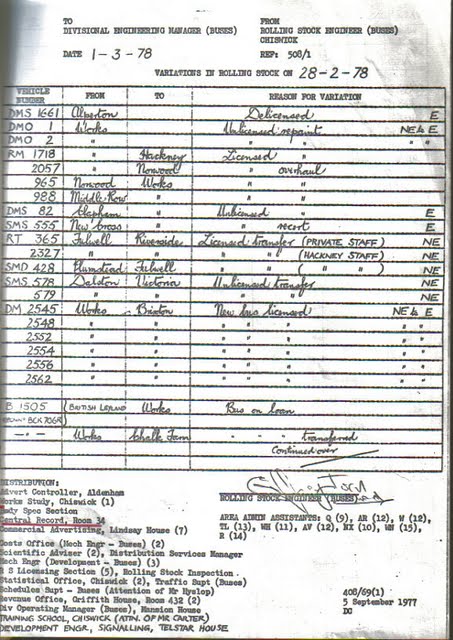 TO FROM
DIVISIONAL ENGINEERING MANAGER (BUSES) ROLLING STOCK ENGINEER (BUSES)
CHISWICK
DATE 1-3-78 REF: 508/1
VARIATIONS IN ROLLING STOCK ON 28-2-78
VEHICLE NUMBER FROM TO REASON FOR VARIATION
DMS 1661 Alperton Delicensed E
DMO 1 Works Unlicensed repaint NE & E
DMO 2 " " " "
RM 1718 " Hackney Licensed "
2057 " Norwood " overhaul
965 Norwood Works " "
988 Middle Row " " "
DMS 82 Clapham " Unlicensed " E
SMS 555 New Cross " " recert E
RT 365 Fulwell Riverside Licensed transfer (PRIVATE STAFF) NE
2327 " " " " (HACKNEY STAFF) NE
SMD 428 Plumstead Fulwell " " ( " " ) NE
SMS 578 Dalston Victoria Unlicensed transfer NE
579 " " " " NE
DM 2545 Works Brixton New bus licensed NE & E
2548 " " " " " " "
2552 " " " " " " "
2554 " " " " " " "
2556 " " " " " " "
2562 " " " " " " "
B 1505 (BRITISH LEYLAND Works Bus on loan
BCK 706R)
-"- Works Chalk Farm " " " transferred
Continued over
DISTRIBUTION:
Advert Controller, Aldenham
Works Study, Chiswick (1)
Body Spec Section
Central Record, Room 34
Commercial Advertising, Lindsay House (7)
Costs Office (Mech Engr - Buses) (2)
Scientific Adviser (2), Distribution Services Manager
Mech Engr (Development - Buses) (3)
R S Licensing Section (5), Rolling Stock Inspection
Statistical Office, Chiswick (2), Traffic Supt (Buses)
Schedules Supt - Buses (Attention of Mr Hyslop)
Revenue Office, Griffith House, Room 432 (2)
Div Operating Manager (Buses), Mansion House
TRAINING SCHOOL, CHISWICK (ATTN. OF MR CARTER)
DEVELOPMENT ENGR, SIGNALLING, TELSTAR HOUSE
ROLLING STOCK ENGINEER (BUSES)
AREA ADMIN ASSISTANTS: Q (9), AR (12), W (12),
TL (13), WH (11), AV (12), NX (10), WN (15),
R (14)
408/69(1)
5 September 1977
DG